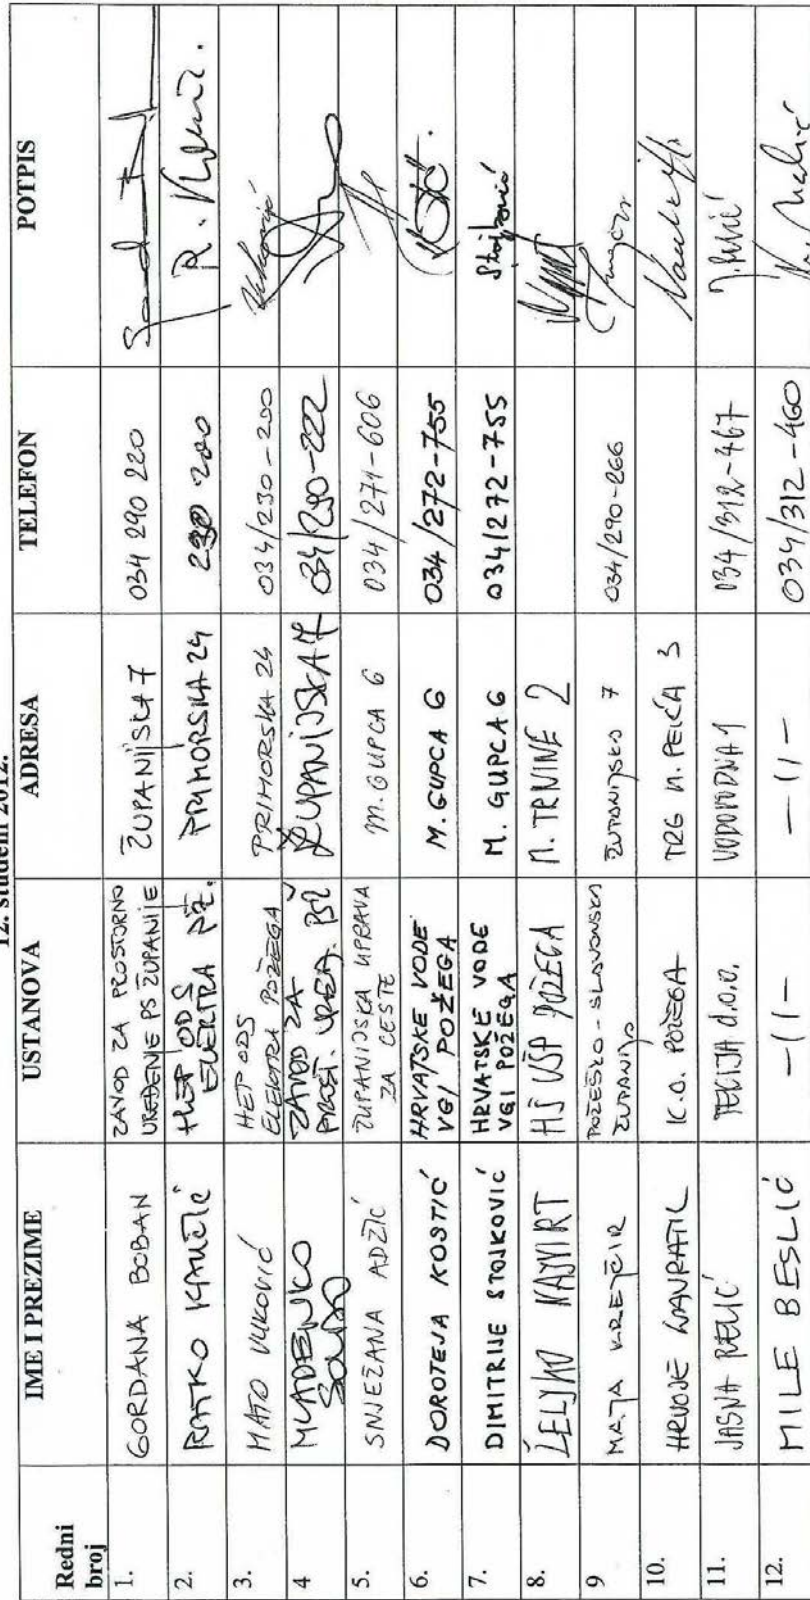 12. studeni 2012.
Redni broj IME I PREZIME USTANOVA ADRESA TELEFON POTPIS
1. GORDANA BOBAN ZAVOD ZA PROSTORNO UREĐENJE PS ŽUPANIJE ŽUPANIJSKA 7 034 290 220
2. RATKO HEP ODS ELEKTRA PŽ. PRIMORSKA 24 230 200
3. MATO VUKOVIĆ HEP ODS ELEKTRA POŽEGA PRIMORSKA 24 034/230-200 Vuković
4 MLADENKO ZAVOD ZA PROST. UREĐ. PSŽ ŽUPANIJSKA 7 034/290-222
5. SNJEŽANA ADŽIĆ ŽUPANIJSKA UPRAVA ZA CESTE M. GUPCA 6 034/271-606
6. DOROTEJA KOSTIĆ HRVATSKE VODE VGI POŽEGA M. GUPCA 6 034/272-755
7. DIMITRIJE STOJKOVIĆ HRVATSKE VODE VGI POŽEGA M. GUPCA 6 034/272-755 Stojković
8. ŽELJKO NAJVIRT HŠ UŠP POŽEGA M. TRNINE 2
9 MAJA KREJČIR POŽEŠKO-SLAVONSKA ŽUPANIJA ŽUPANIJSKA 7 034/290-266
10. HRVOJE NAVRATIL K.O. POŽEGA TRG M. PEIĆA 3
11. JASNA TEKIJA d.o.o. VODOVODNA 1 034/312-467
12. MILE BESLIĆ -//- -//- 034/312-460